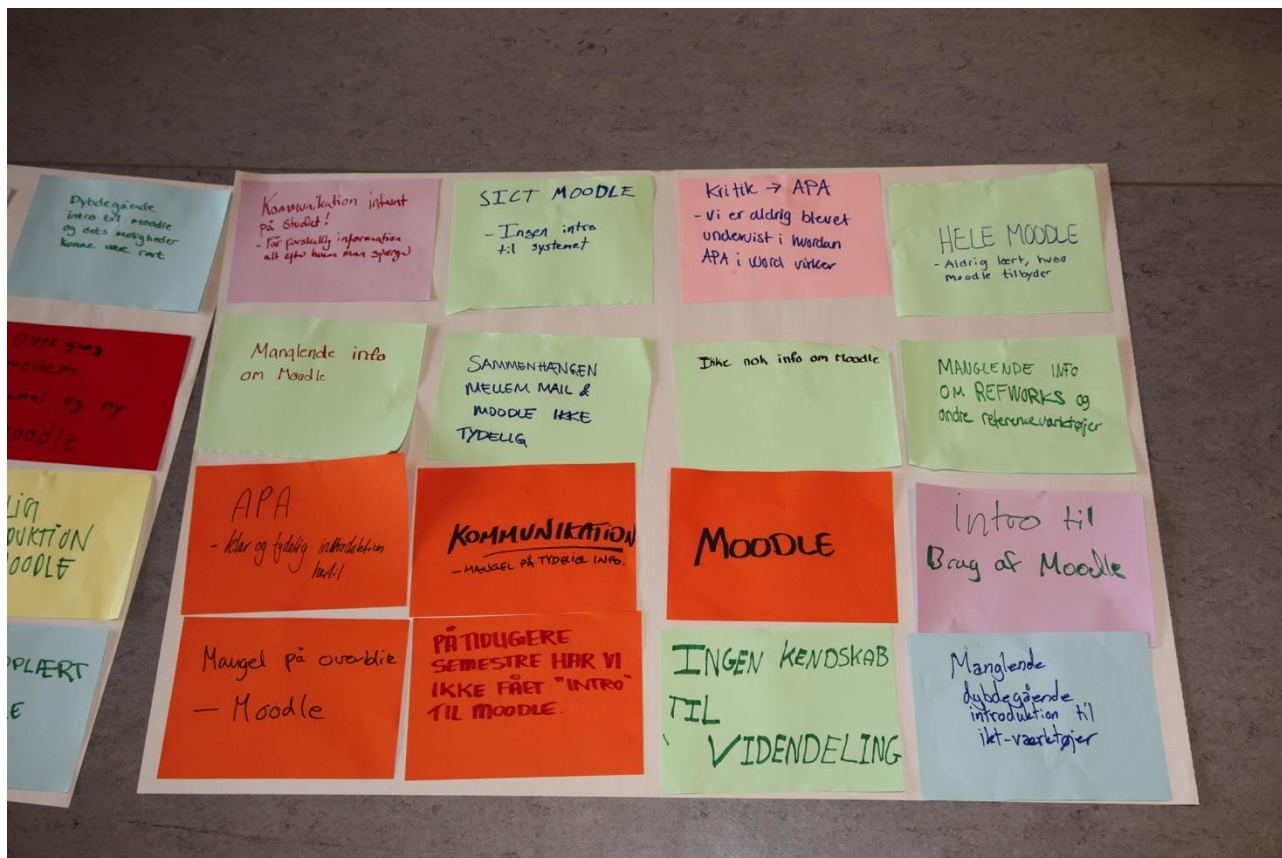 Dybdegående
intro til moodle
og dets muligheder
kunne være rart
Over gang
mellem
og ny
Moodle
Kommunikation internt
på Studiet!
- Får forskellig information
alt efter hvem man spørger
SICT MOODLE
- Ingen intro
til systemet
Kritik → APA
- Vi er aldrig blevet
undervist i hvordan
APA i Word virker
HELE MOODLE
- Aldrig lært, hvad
moodle tilbyder
Manglende info
om Moodle
SAMMENHÆNGEN
MELLEM MAIL &
MOODLE IKKE
TYDELIG
Ikke nok info om Moodle
MANGLENDE INFO
OM REFWORKS og
andre referenceværktøjer
APA
- klar og tydelig introduktion
hertil
KOMMUNIKATION
- MANGEL PÅ TYDELIG INFO.
MOODLE
Intro til
Brug af Moodle
Mangel på overblik
- Moodle
PÅ TIDLIGERE
SEMESTRE HAR VI
IKKE FÅET "INTRO"
TIL MOODLE.
INGEN KENDSKAB
TIL
VIDENDELING
Manglende
dybdegående
introduktion til
ikt-værktøjer